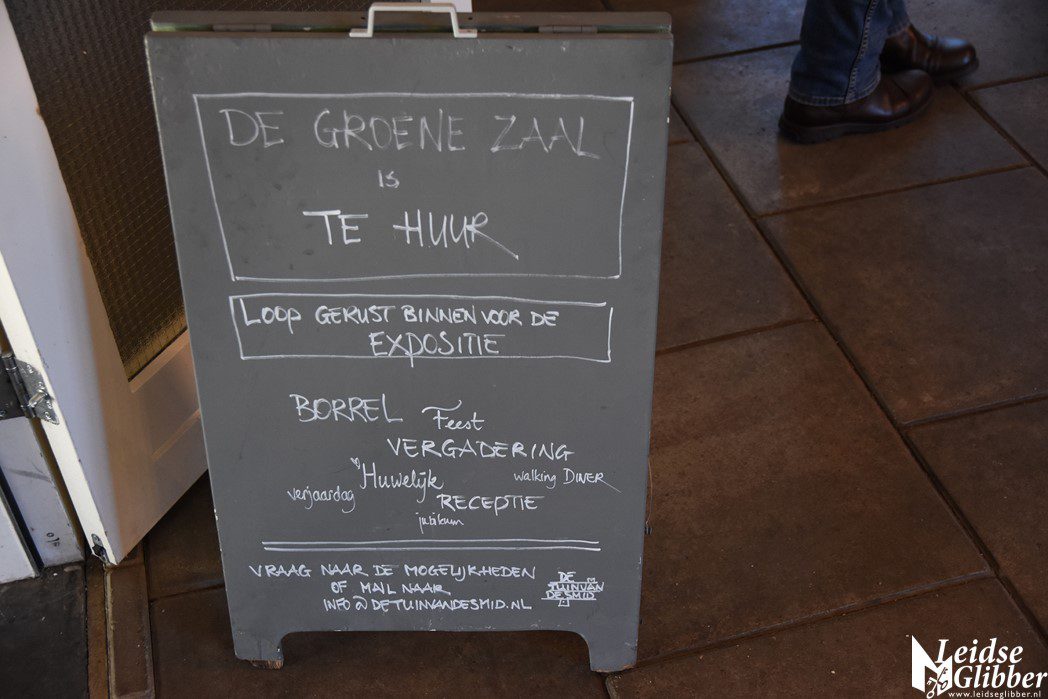 DE GROENE ZAAL
is
TE HUUR
LOOP GERUST BINNEN VOOR DE
EXPOSITIE
BORREL Feest
VERGADERING
Huwelijk walking DINER
verjaardag RECEPTIE
jubileum
VRAAG NAAR DE MOGELIJKHEDEN
OF MAIL NAAR
INFO@DETUINVANDESMID.NL
DE
TUINVAN
DESMID
Leidse
Glibber
www.leidseglibber.nl